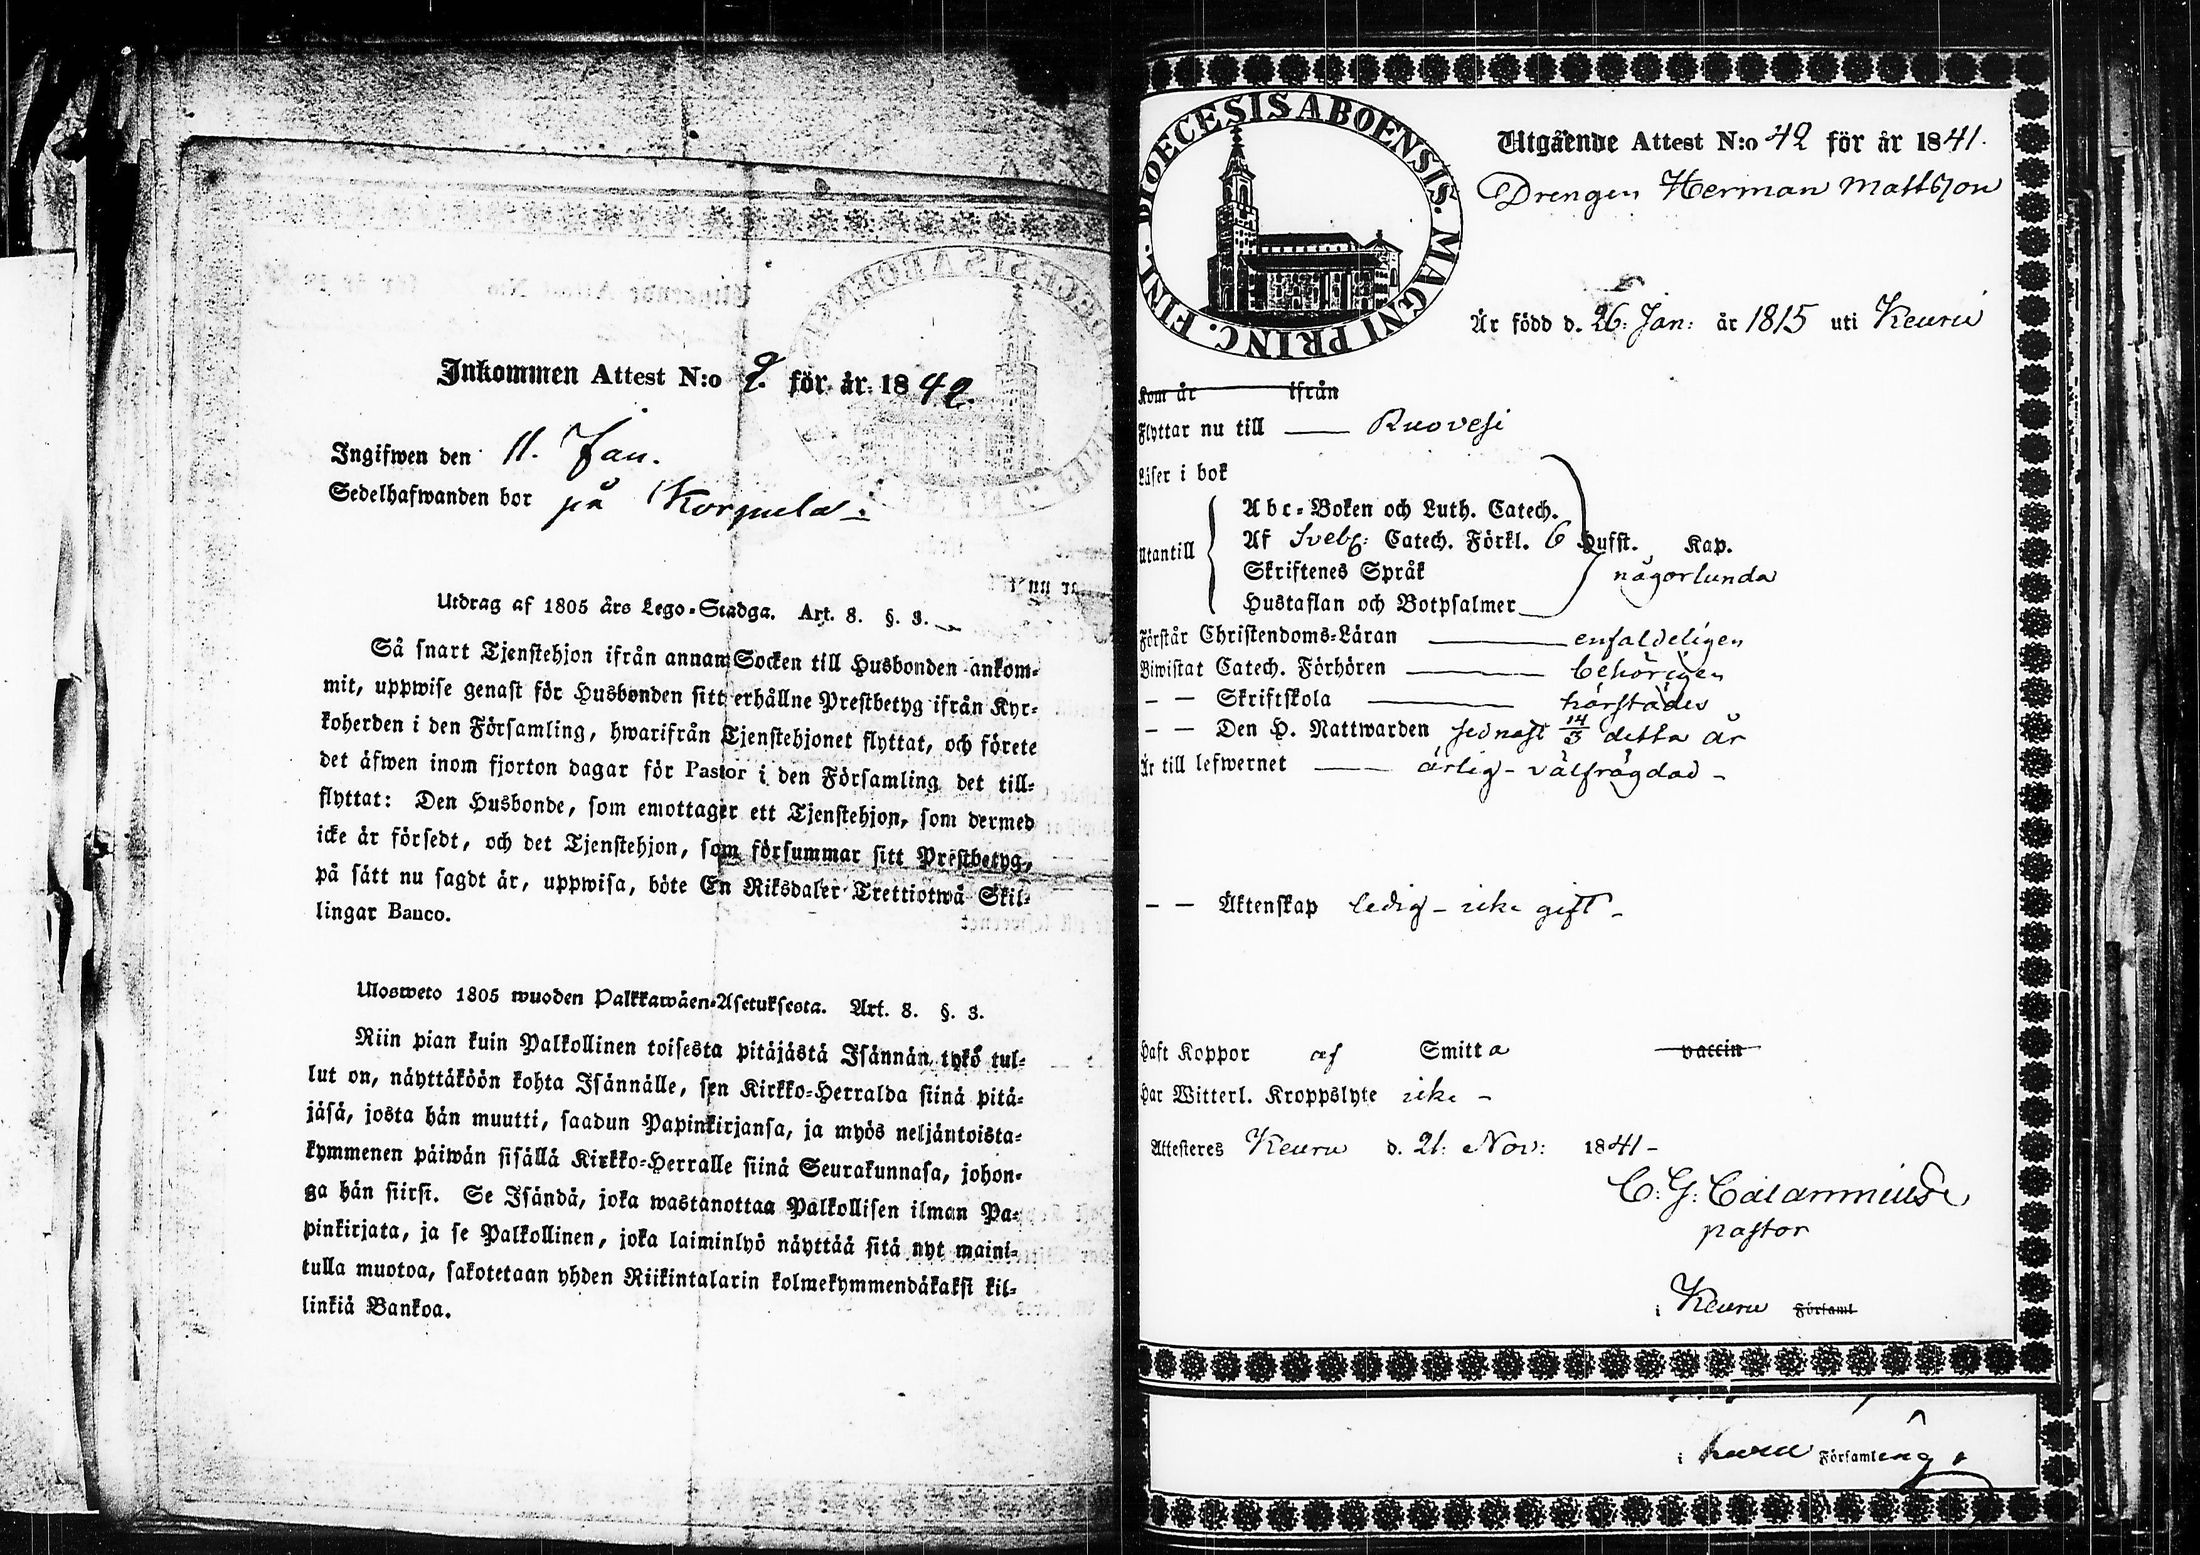 Inkommen Attest N:o 2. för år 1842.
Ingifwen den 11. Jan.
Sedelhafwanden bor på Korpula
Utdrag af 1805 års Lego-Stadga. Art. 8. §. 3.
Så snart Tjenstehjon ifrån annan Socken till Husbonden ankom-
mit, uppwise genast för Husbonden sitt erhållne Prestbetyg ifrån Kyr-
koherden i den Församling, hwarifrån Tjenstehjonet flyttat, och förete
det äfwen inom fjorton dagar för Pastor i den Församling det till-
flyttat: Den Husbonde, som emottager ett Tjenstehjon, som dermed
icke är försedt, och det Tjenstehjon, som försummar sitt Prestbetyg,
på sätt nu sagdt är, uppwisa, böte En Riksdaler Trettiotwå Skil-
lingar Banco.
Ulosweto 1805 wuoden Palkkawäen-Asetuksesta. Art. 8. §. 3.
Niin pian kuin Palkollinen toisesta pitäjästä Isännän tykö tul-
lut on, näyttäköön kohta Isännälle, sen Kirkko-Herralda siinä pitä-
jäsä, josta hän muutti, saadun Papinkirjansa, ja myös neljäntoista-
kymmenen päiwän sisällä Kirkko-Herralle siinä Seurakunnasa, johon-
ga hän siirsi. Se Isändä, joka wastanottaa Palkollisen ilman Pa-
pinkirjata, ja se Palkollinen, joka laiminlyö näyttää sitä nyt maini-
tulla muotoa, sakotetaan yhden Riikintalarin kolmekymmendäkaksi kil-
linkiä Bankoa.
DIOECESIS ABOENSIS. MAGNI PRINC. FINL.
Utgående Attest N:o 42 för år 1841.
Drengen Herman Mattsson
Är född d. 26: Jan: år 1815 uti Keuru
Kom år ifrån
Flyttar nu till Ruovesi
Läser i bok
Utantill
Abc-Boken och Luth. Catech.
Af Sveb: Catech. Förkl. 6 Hufst. Kap.
Skriftenes Språk någorlunda
Hustaflan och Botpsalmer
Förstår Christendoms-Läran enfaldeligen
Biwistat Catech. Förhören behörigen
– – Skriftskola härstädes
– – Den H. Nattwarden sednast 14/3 detta år
Är till lefwernet ärlig – välfrägdad –
– – Äktenskap ledig – icke gift –
Haft Koppor af Smitta vaccin
Har Witterl. Kroppslyte icke –
Attesteres Keuru d. 21. Nov: 1841 –
C. G. Calamnius
pastor
i Keuru Församl
i Keuru Församling